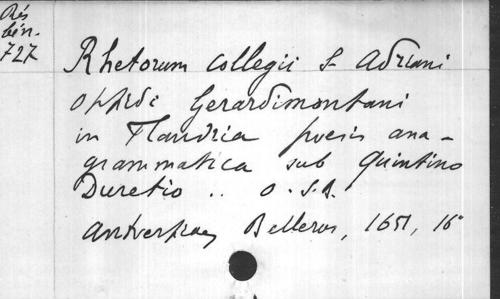 Rés
bén.
727
Rhetorum collegii S Adriani
oppidi Gerardimontani
in Flandria poesis ana-
grammatica sub Quintino
Duretio .. O.S.B.
Antverpiae, Bellerus, 1651, 16°